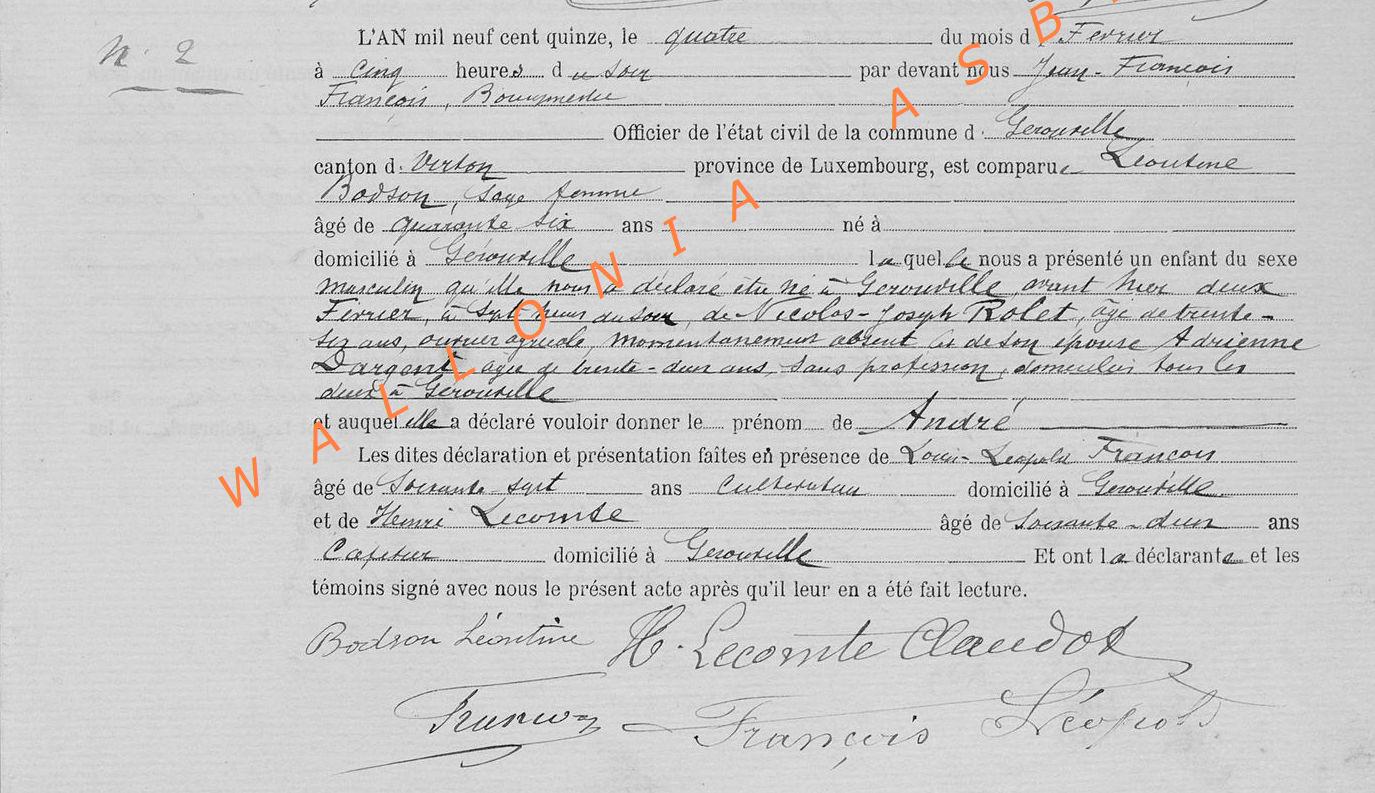 N. 2
L'AN mil neuf cent quinze, le quatre du mois d Fevrier
à Cinq heures du soir par devant nous Jean-François
François, Bourgmestre
Officier de l'état civil de la commune d Gerouville
canton d Virton province de Luxembourg, est comparue Léontine
Bodson, Sage femme
âgé de quarante six ans né à
domicilié à Gérouville laquelle nous a présenté un enfant du sexe
masculin qu'elle nous a déclaré être né à Gerouville, avant hier deux
Février, à sept heures du soir, de Nicolas-Joseph Rolet, âgé de trente-
six ans, ouvrier agricole, momentanement absent et de son épouse Adrienne
Dargent agée de trente-deux ans, sans profession, domiciliés tous les
deux à Gérouville
et auquel elle a déclaré vouloir donner le prénom de André
Les dites déclaration et présentation faites en présence de Louis-Léopold François
âgé de Soixante-sept ans Cultivateur domicilié à Gérouville.
et de Henri Lecomte âgé de soixante-deux ans
Cafetier domicilié à Gerouville Et ont la déclarante et les
témoins signé avec nous le présent acte après qu'il leur en a été fait lecture.
Bodson Léontine H. Lecomte Claudot
François Léopold
WALLONIA ASB